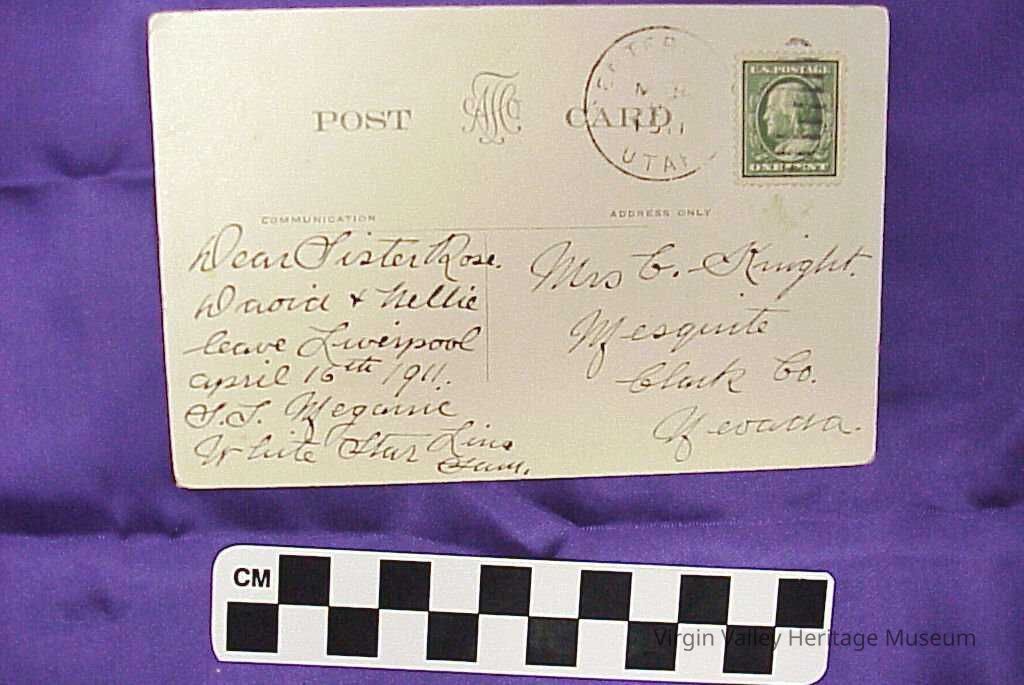 POST CARD
UTAH
1911
U.S. POSTAGE
ONE CENT
COMMUNICATION
ADDRESS ONLY
Dear Sister Rose.
David & Nellie
leave Liverpool
april 15th 1911.
S.S. Megantic
White Star Line
Sam.
Mrs C. Knight.
Mesquite
Clark Co.
Nevada.
CM
Virgin Valley Heritage Museum